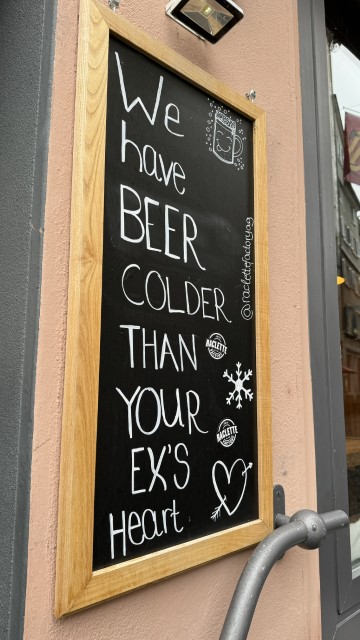 We
have
BEER
COLDER
THAN
YOUR
EX'S
Heart
@raclettefactoryag
RACLETTE
RACLETTE